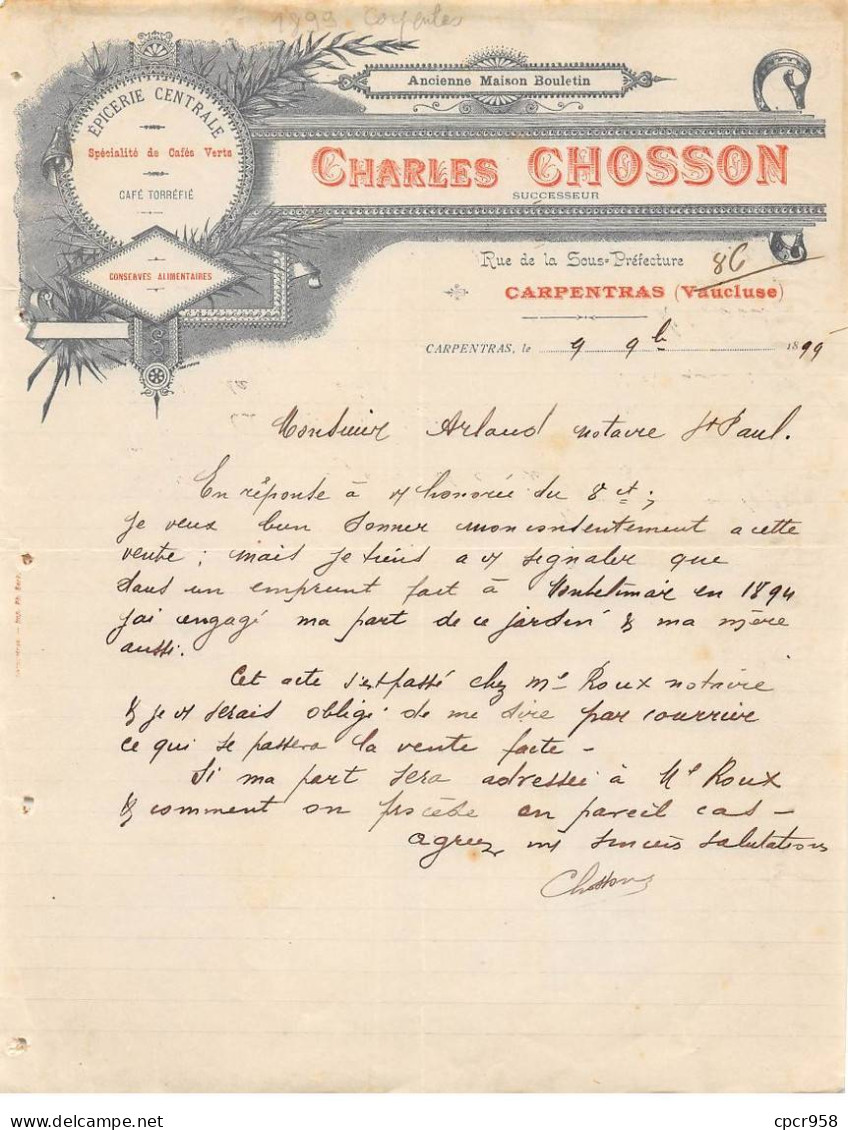 1899 Carpentras
Ancienne Maison Bouletin
ÉPICERIE CENTRALE
Spécialité de Cafés Verts
CAFÉ TORRÉFIÉ
CONSERVES ALIMENTAIRES
CHARLES CHOSSON
SUCCESSEUR
Rue de la Sous-Préfecture
8C
CARPENTRAS (Vaucluse)
CARPENTRAS, le 9 9b 1899
Monsieur Arlaud notaire St Paul.
En réponse à v/ honorée du 8 ct;
je veux bien donner mon consentement a cette
vente; mais je tiens a v/ signaler que
dans un emprunt fait à Montelimar en 1894
j'ai engagé ma part de ce jardin & ma mère
aussi.
Cet acte s'est passé chez Me Roux notaire
& je v/ serais obligé de me dire par courrier
ce qui se passera la vente faite -
Si ma part sera adressée à Me Roux
& comment on procède en pareil cas -
agreez mes sincères salutations
Chosson
cpcr958